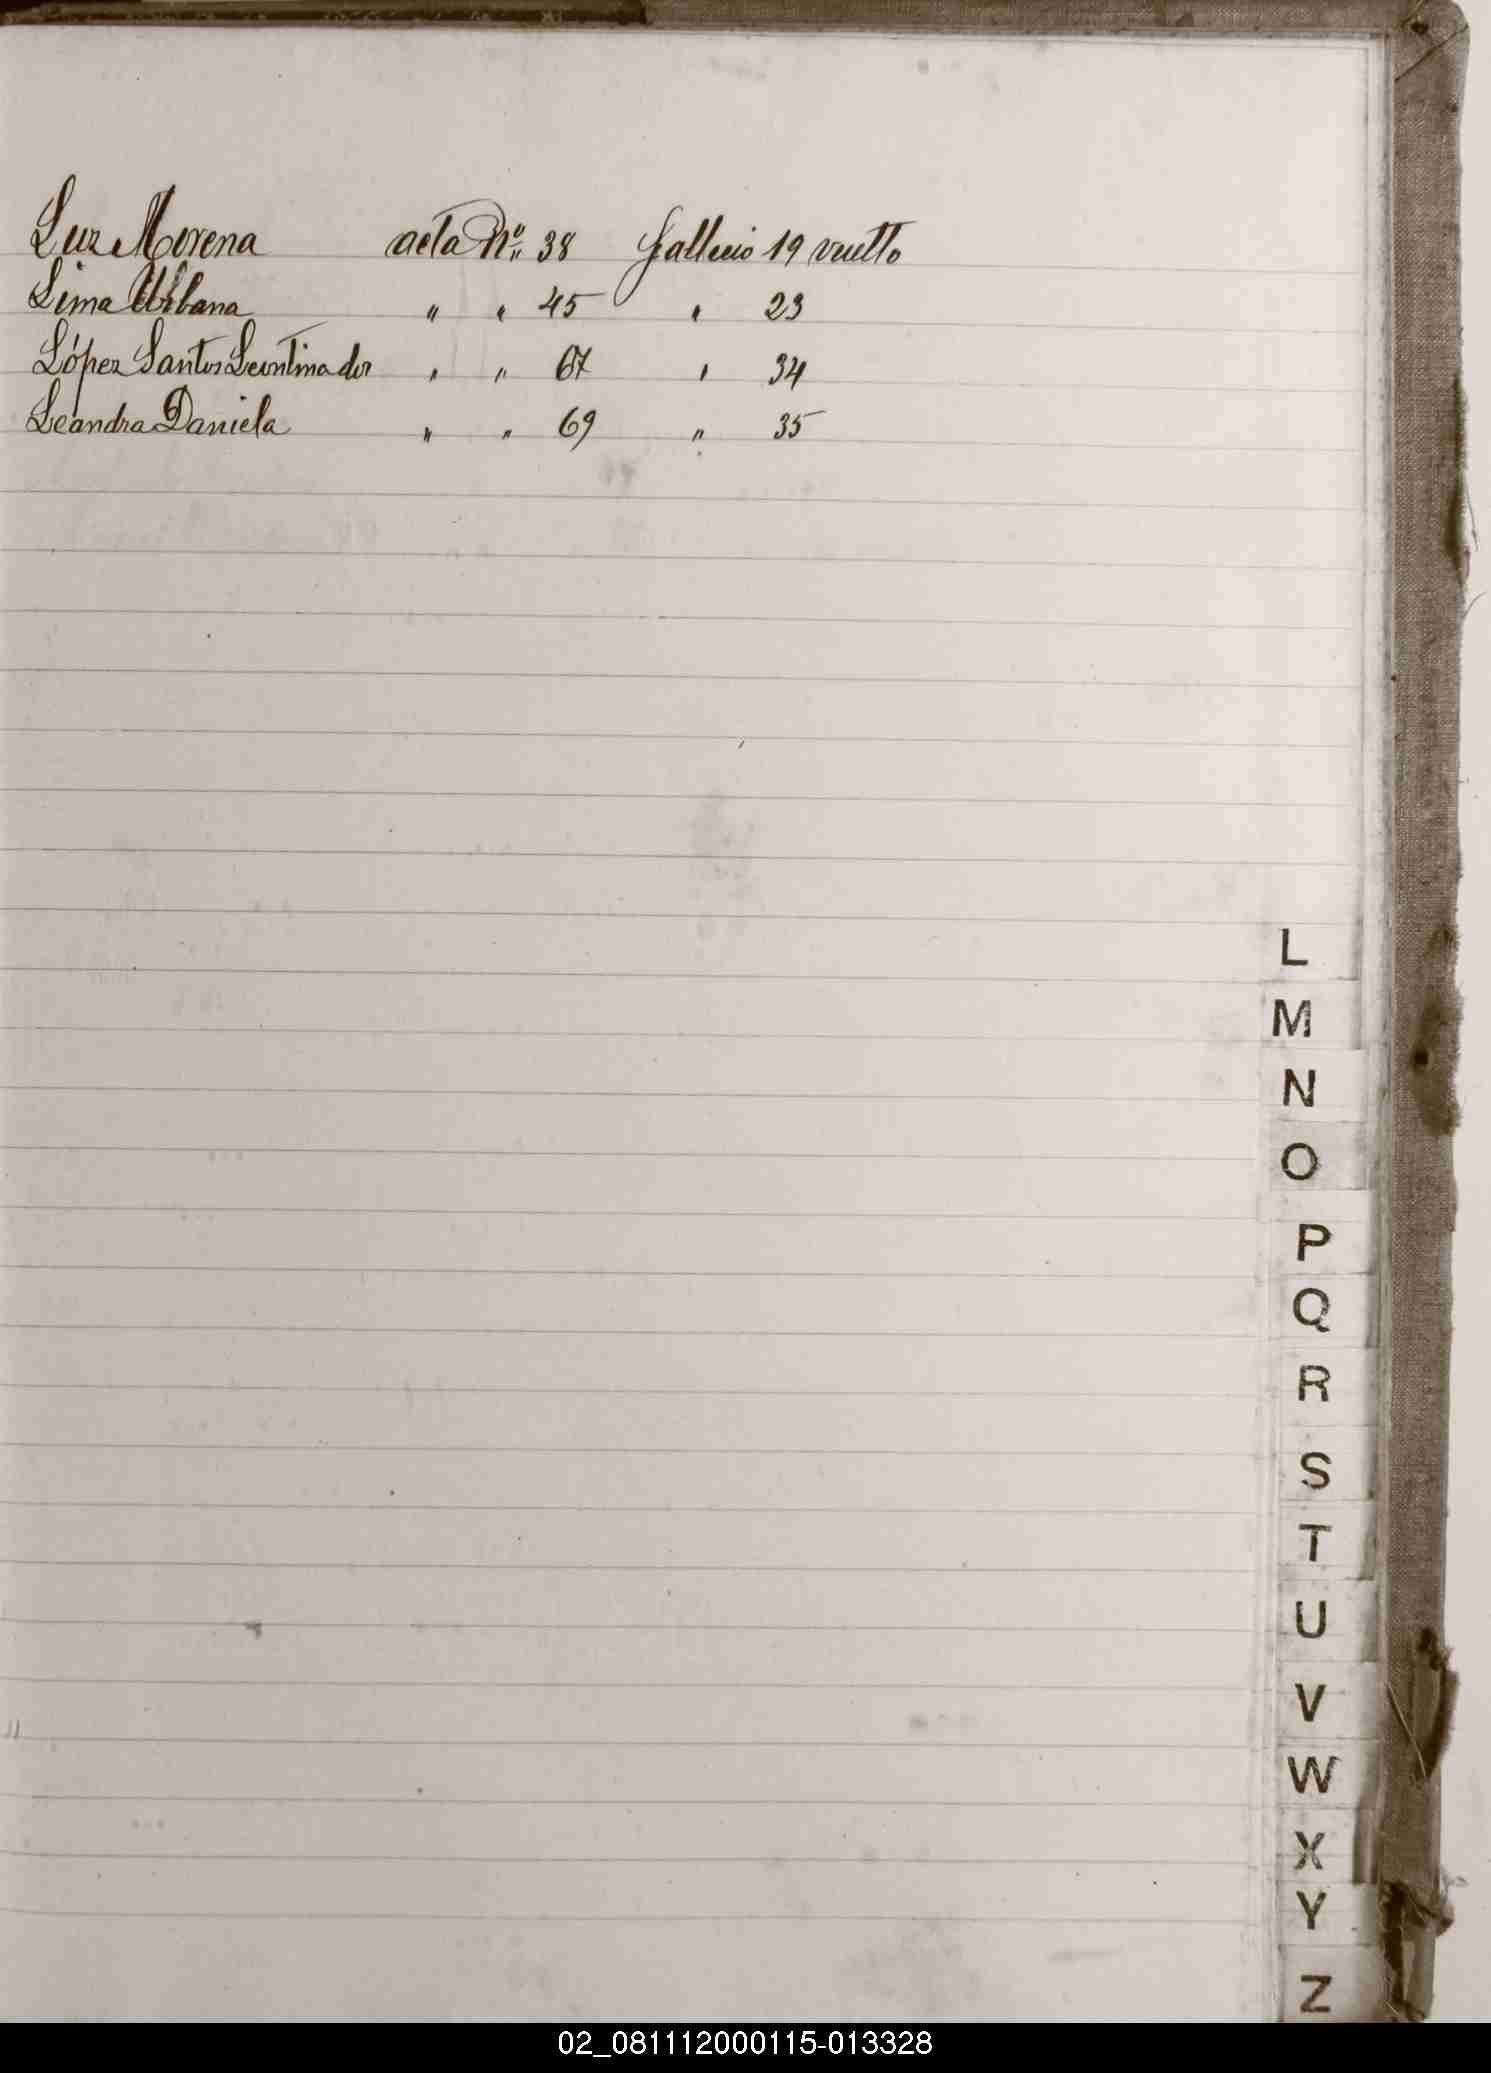 Luz Morena acta Nº 38 Fallecio 19 vuelto
Lima Urbana " " 45 " 23
López Santos Leontina dos " " 67 " 34
Leandra Daniela " " 69 " 35
L
M
N
O
P
Q
R
S
T
U
V
W
X
Y
Z
02_081112000115-013328